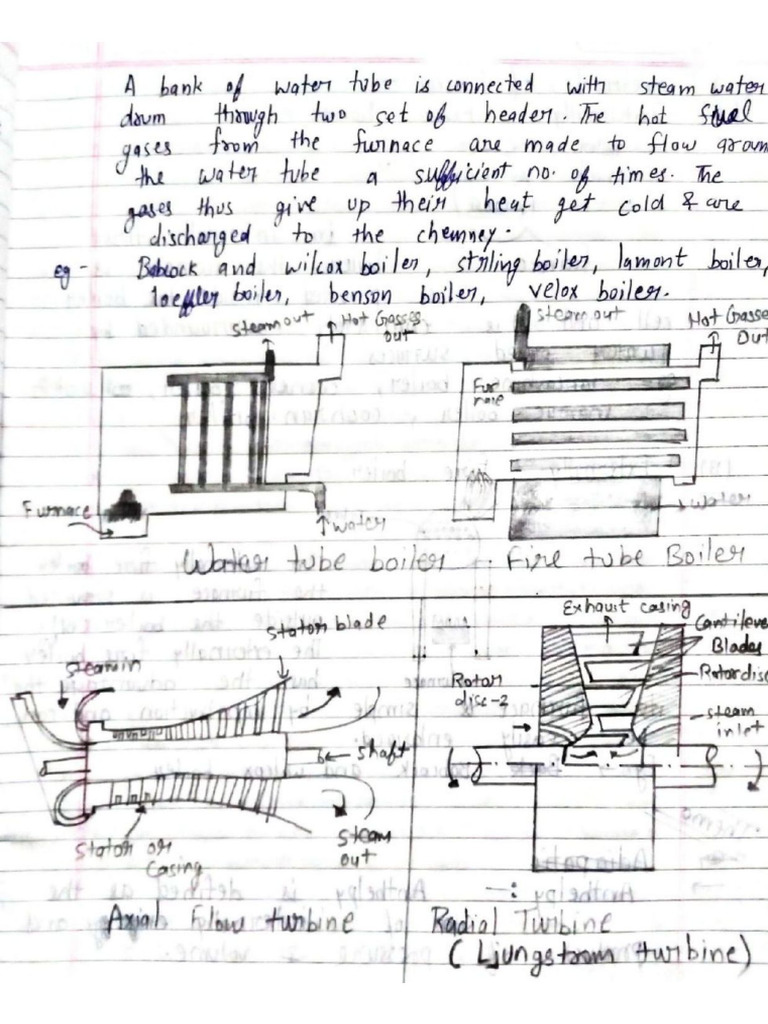 A bank of water tube is connected with steam water
drum through two set of header. The hot fuel
gases from the furnace are made to flow aroun
the water tube a sufficient no. of times. The
gases thus give up their heat get cold & are
discharged to the chemney.
eg - Babcock and wilcox boiler, striling boiler, lamont boiler,
loeffler boiler, benson boiler, velox boiler.
Steam out
Hot Gasses
Out
Furnace
Water
Water tube boiler
steam out
Hot Gasse
Out
Fur
nace
Water
Fire tube Boiler
Stator blade
Steam in
Shaft
Stator or
Casing
Steam
out
Axial Flow turbine
Exhaust casing
Cantileve
Blades
Rotor disc
Rotor
disc-2
steam
inlet
Radial Turbine
(Ljungstrom turbine)